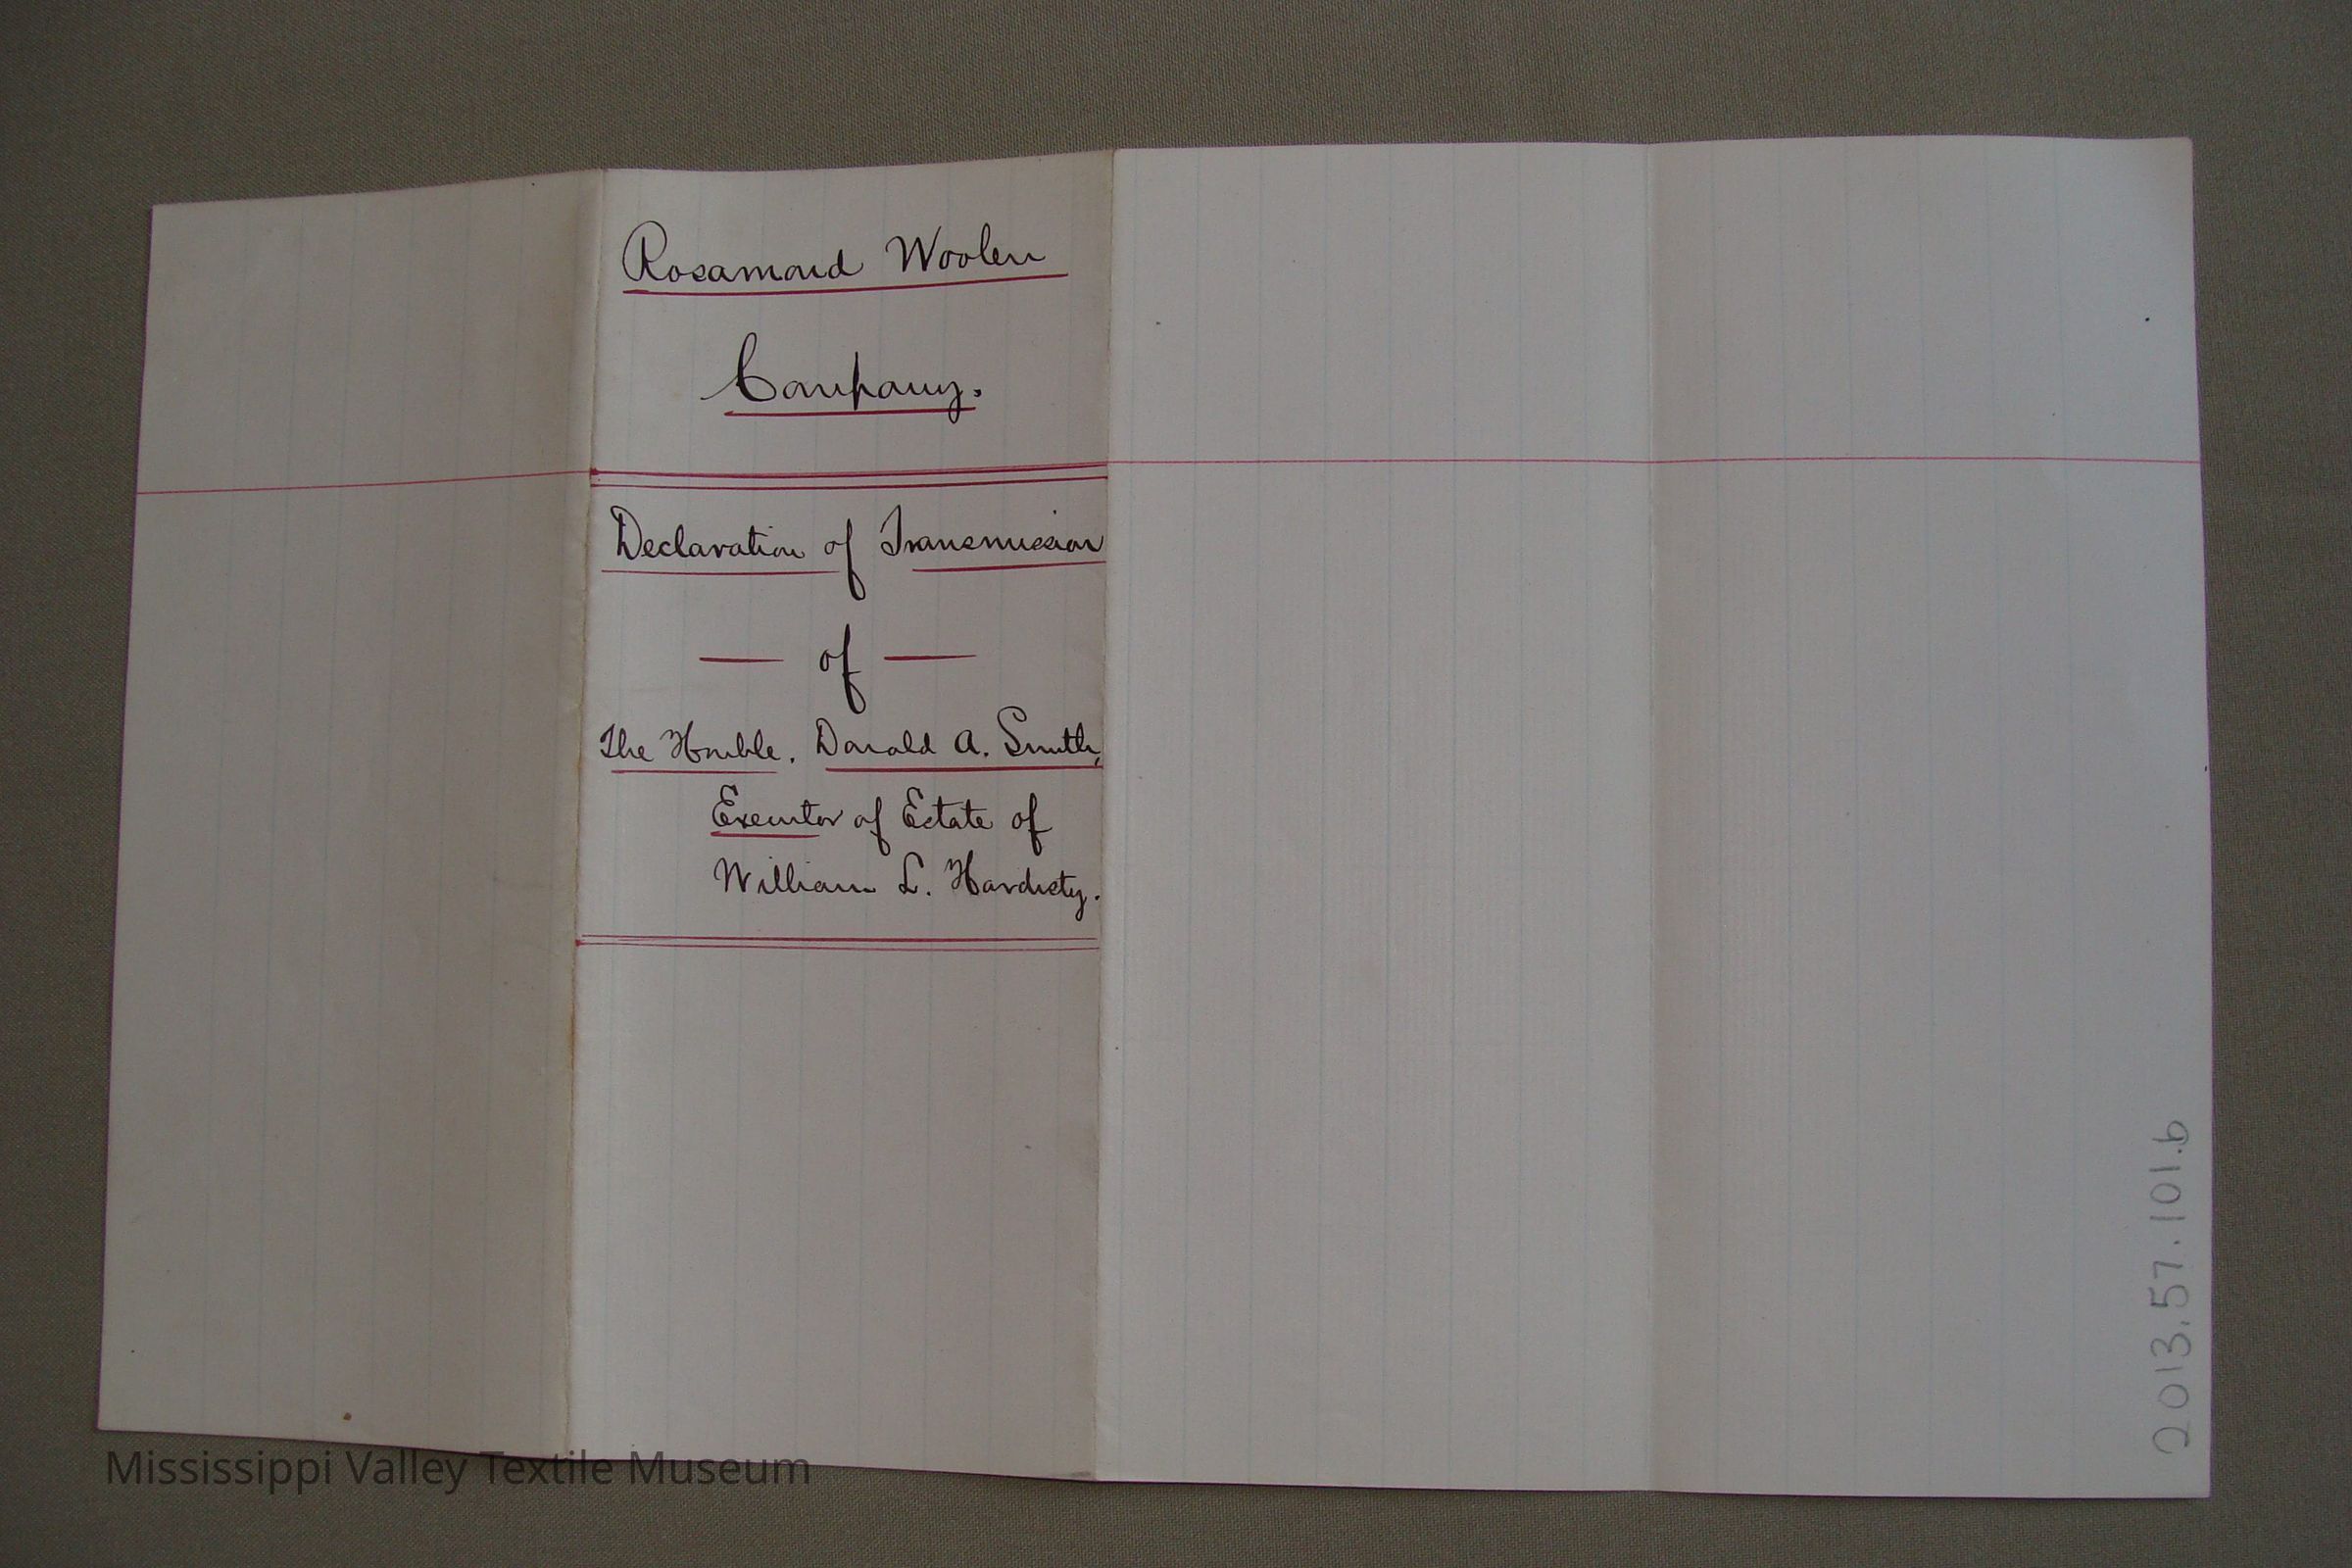 Rosamond Woolen
Company.
Declaration of Transmission
— of —
The Honble. Donald A. Smith,
Executor of Estate of
William L. Hardisty.
2013.57.101.b
Mississippi Valley Textile Museum